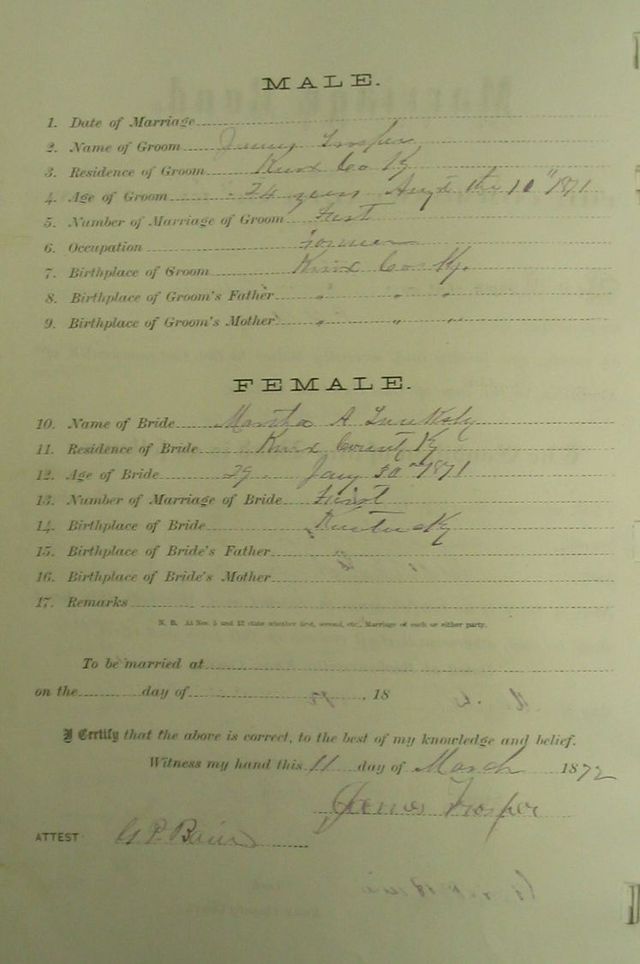 MALE.
1. Date of Marriage
2. Name of Groom James Trosper
3. Residence of Groom Knox Co Ky
4. Age of Groom 24 years Augt the 10" 1871
5. Number of Marriage of Groom First
6. Occupation Farmer
7. Birthplace of Groom Knox Co Ky.
8. Birthplace of Groom's Father " " "
9. Birthplace of Groom's Mother " " "
FEMALE.
10. Name of Bride Martha A
11. Residence of Bride Knox County Ky
12. Age of Bride 29 Jany 30 1871
13. Number of Marriage of Bride First
14. Birthplace of Bride Kentucky
15. Birthplace of Bride's Father
16. Birthplace of Bride's Mother
17. Remarks
N. B. At Nos. 5 and 13 state whether first, second, etc., Marriage of each or either party.
To be married at
on the day of , 18
I Certify that the above is correct, to the best of my knowledge and belief.
Witness my hand this 11 day of March 1872
James Trosper
ATTEST